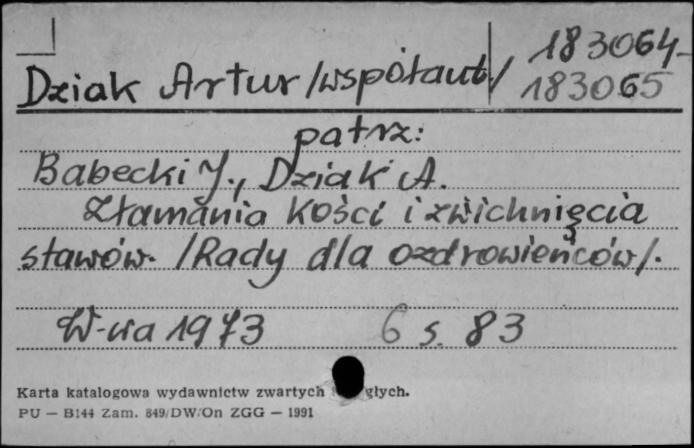 183064-
Dziak Artur /współaut./ 183065
patrz:
Babecki J., Dziak A.
Złamania kości i zwichnięcia
stawów. /Rady dla ozdrowieńców/.
W-wa 1973 6 s. 83
Karta katalogowa wydawnictw zwartych głych.
PU — B144 Zam. 849/DW/On ZGG — 1991